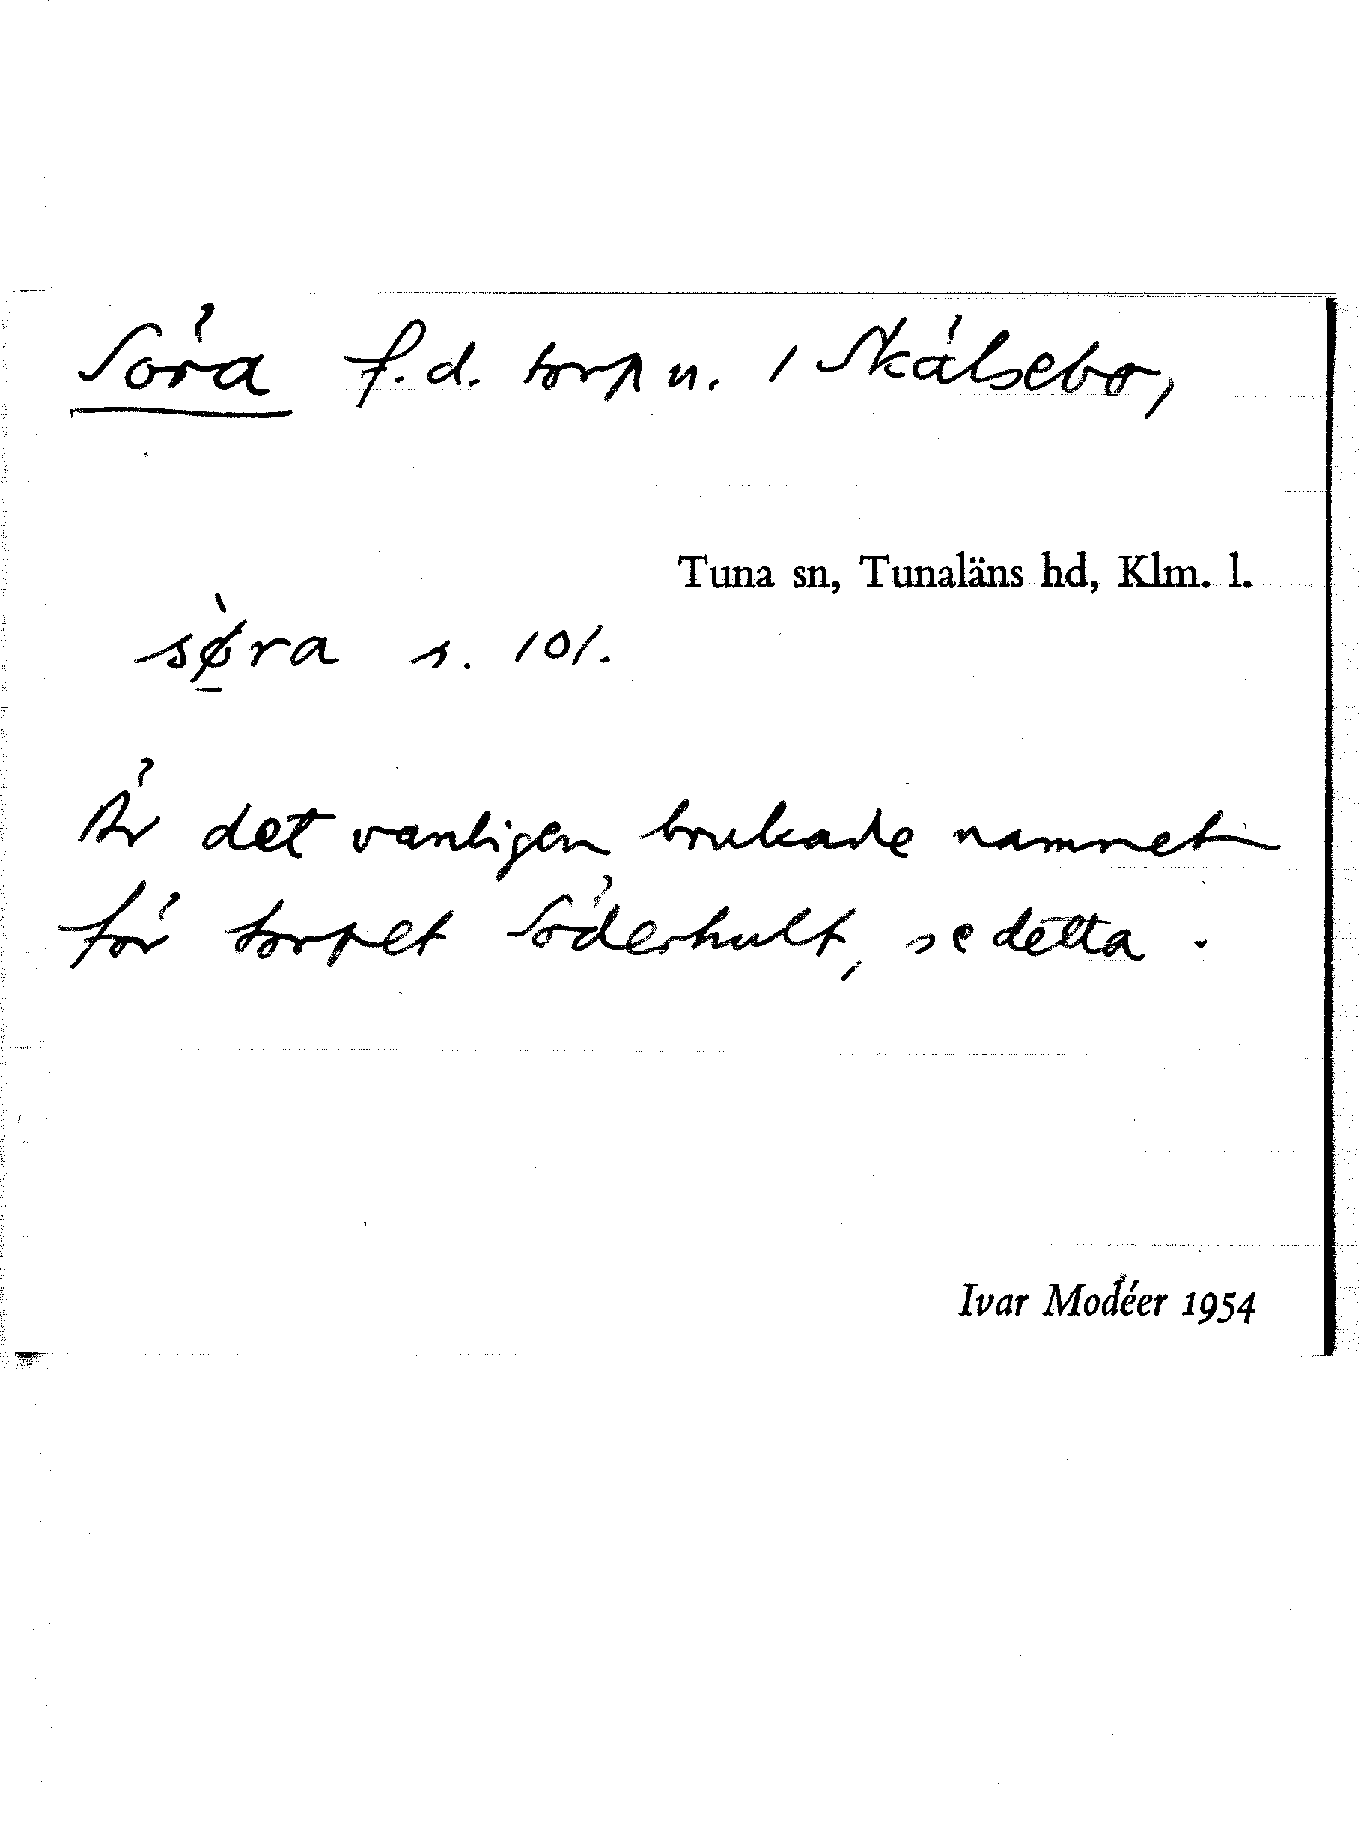 Söra f.d. torp u. 1 Skålsebo,
Tuna sn, Tunaläns hd, Klm. l.
sø̀ra s. 101.
Är det vanligen brukade namnet
för torpet Söderhult, se detta.
Ivar Modéer 1954